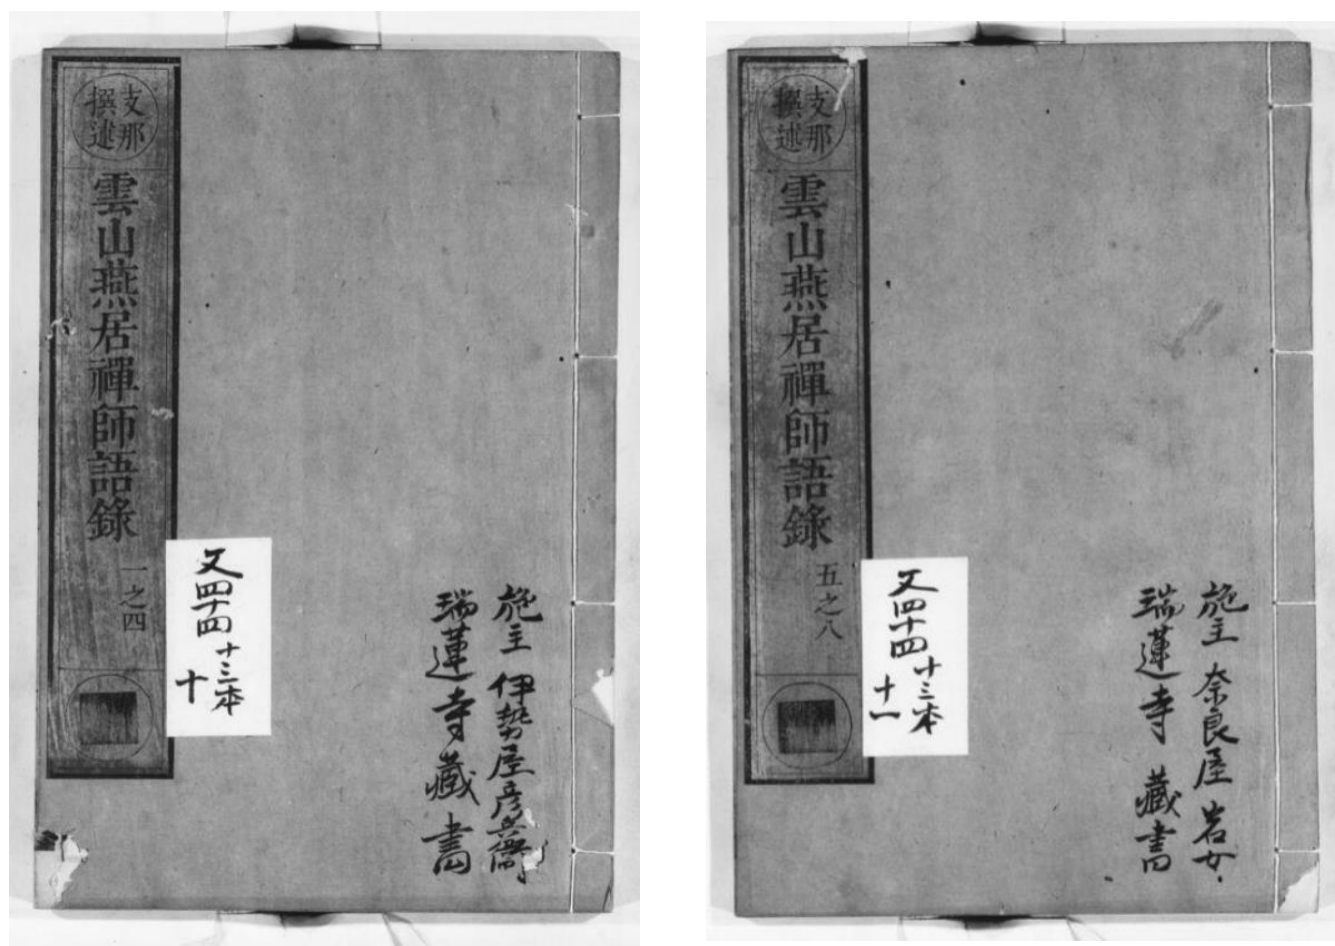 支那
撰述
雲山燕居禪師語錄
一之四
又四十四
十三本
十
施主 伊勢屋彦兵衛
瑞蓮寺藏書
支那
撰述
雲山燕居禪師語錄
五之八
又四十四
十三本
十一
施主 奈良屋岩女
瑞蓮寺藏書